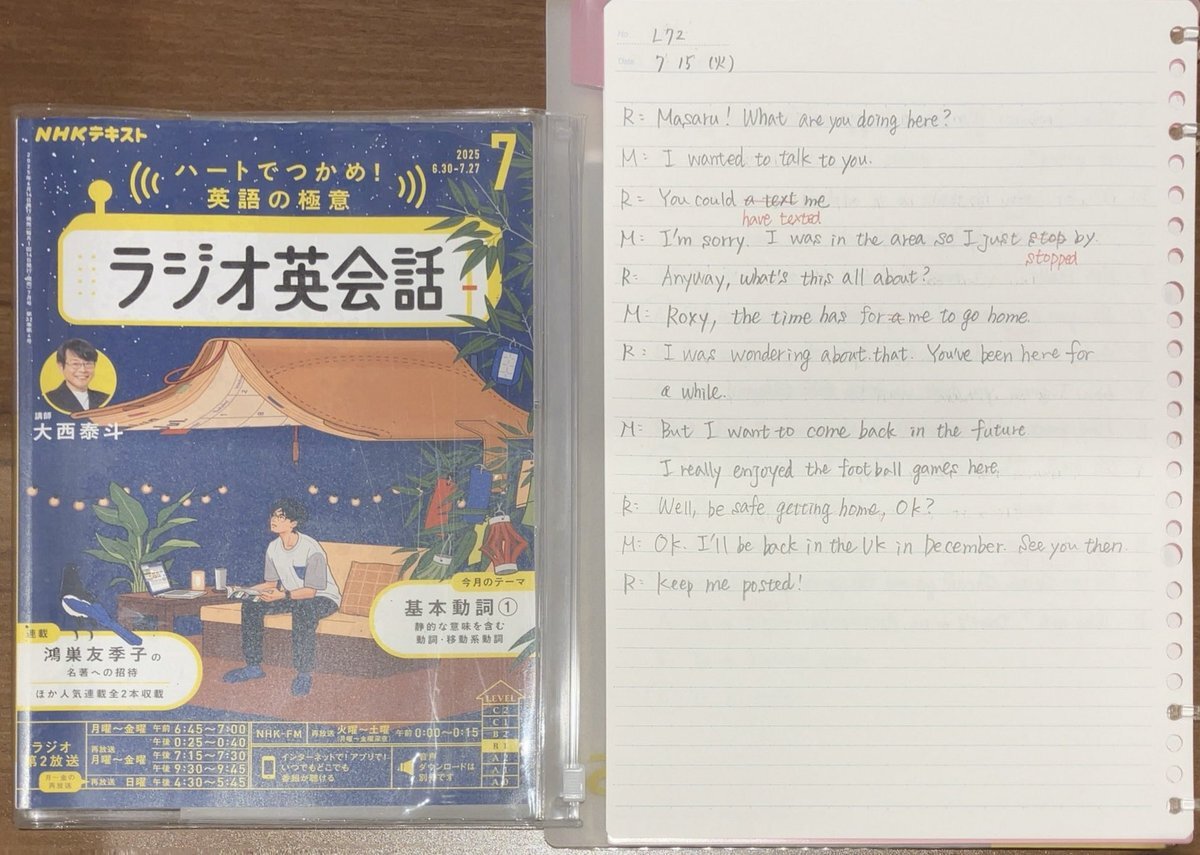 NHKテキスト
2025
6.30-7.27
7
ハートでつかめ!
英語の極意
ラジオ英会話
講師
大西泰斗
今月のテーマ
基本動詞①
静的な意味を含む
動詞・移動系動詞
連載
鴻巣友季子の
名著への招待
ほか人気連載全2本収載
LEVEL
C2
C1
B2
B1
A2
A1
A0
ラジオ
第2放送
月曜〜金曜 午前 6:45〜7:00
再放送 月曜〜金曜
午後 0:25〜0:40
午後 7:15〜7:30
午後 9:30〜9:45
月〜金の再放送
再放送 日曜 午後 4:30〜5:45
NHK-FM 再放送 火曜〜土曜 午前 0:00〜0:15
月曜〜金曜深夜
インターネットで!アプリで!
いつでもどこでも
番組が聴ける
音声
ダウンロードは
別売です
No. L72
Date 7 15 (火)
R: Masaru! What are you doing here?
M: I wanted to talk to you.
R: You could a text me
have texted
M: I'm sorry. I was in the area so I just stop by.
stopped
R: Anyway, what's this all about?
M: Roxy, the time has for a me to go home.
R: I was wondering about that. You've been here for
a while.
M: But I want to come back in the future
I really enjoyed the football games here.
R: Well, be safe getting home, Ok?
M: Ok. I'll be back in the Uk in December. See you then.
R: Keep me posted!